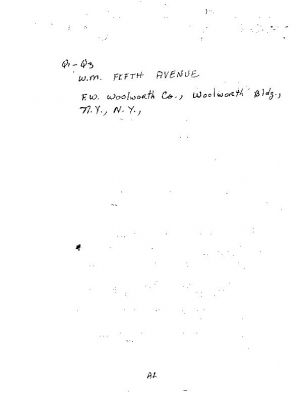 Q1-Q3
W.M. FIFTH AVENUE
F.W. Woolworth Co., Woolworth Bldg.,
N.Y., N.Y.,
A2